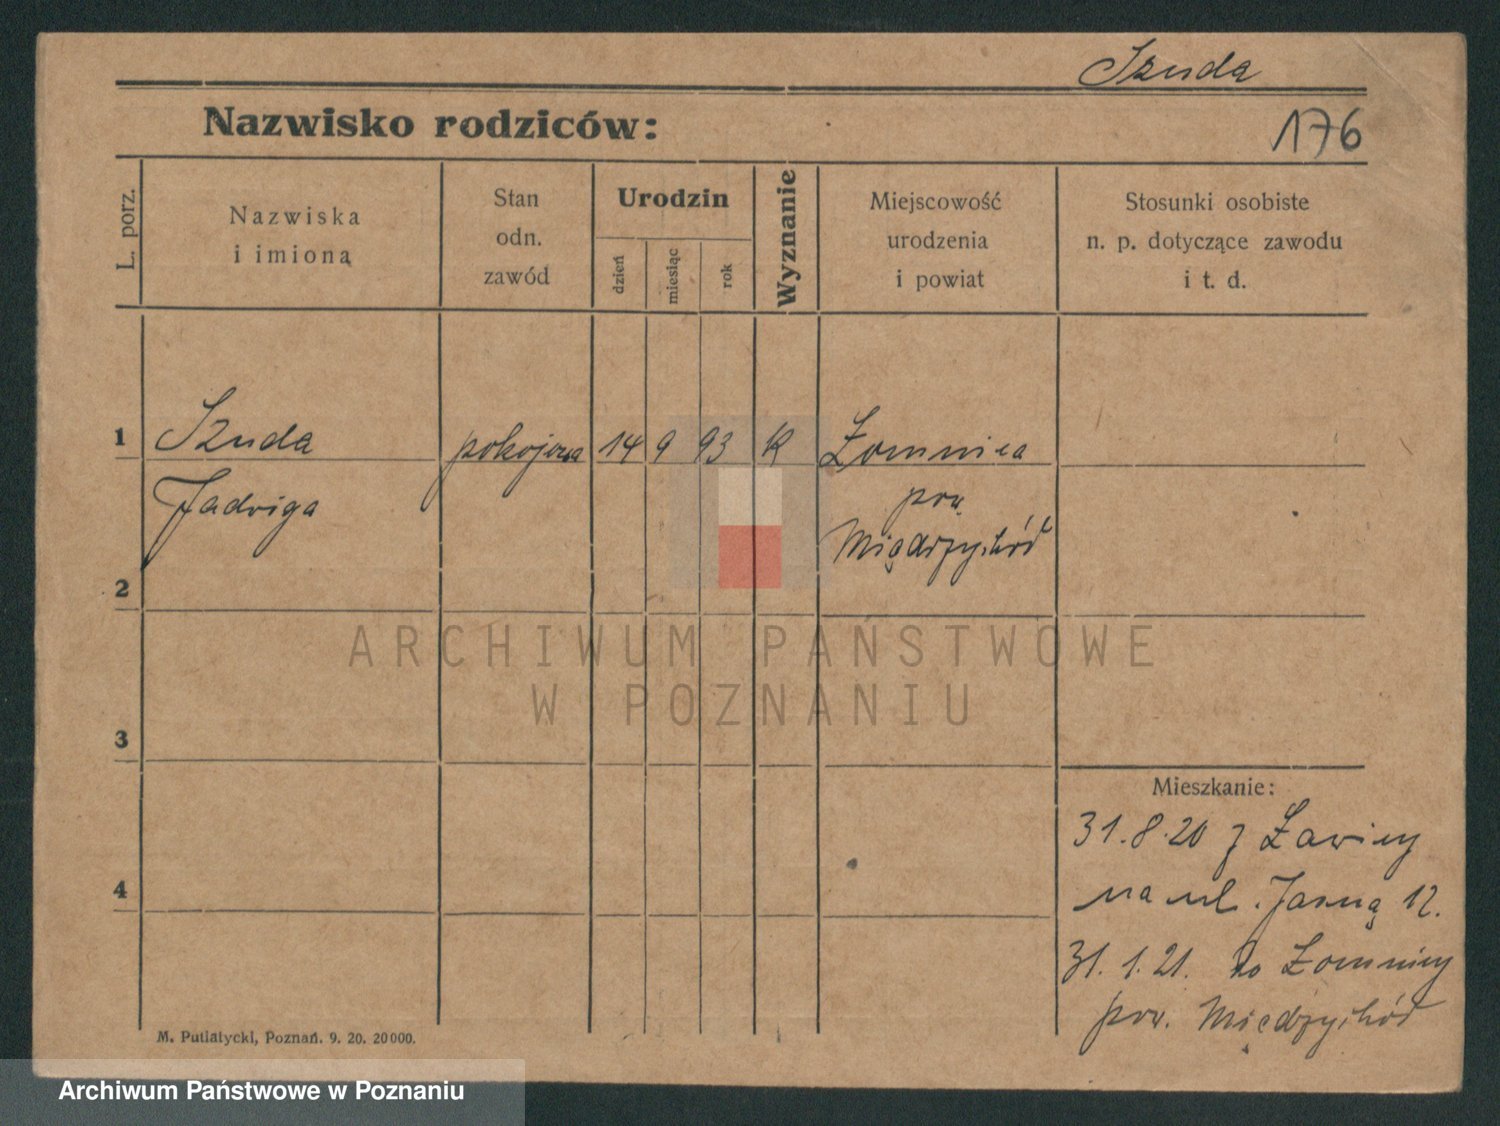 Szuda
Nazwisko rodziców:
176
L. porz.
Nazwiska
i imioną
Stan
odn.
zawód
Urodzin
dzień
miesiąc
rok
Wyznanie
Miejscowość
urodzenia
i powiat
Stosunki osobiste
n. p. dotyczące zawodu
i t. d.
1 Szuda pokojowa 14 9 93 k Łomnica
Jadwiga pow.
Międzychód
2
ARCHIWUM PAŃSTWOWE
W POZNANIU
3
Mieszkanie:
31.8.20 z Ławicy
4
na ul. Jasną 12.
31.1.21. do Łomnicy
pow. Międzychód
M. Putiatycki, Poznań. 9. 20. 20000.
Archiwum Państwowe w Poznaniu